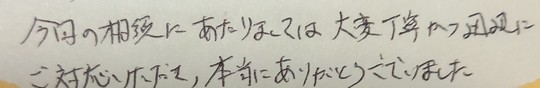 今回の相続にあたりましては大変丁寧かつ迅速に
ご対応いただき,本当にありがとうございました